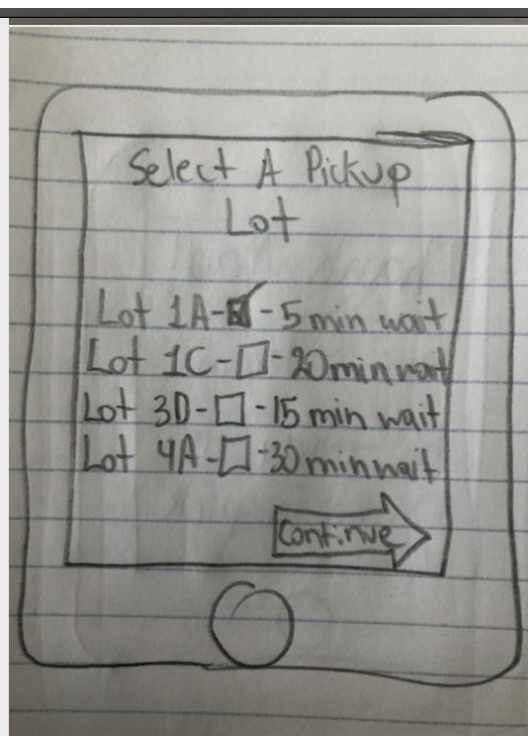 Select A Pickup
Lot
Lot 1A-☑-5 min wait
Lot 1C-☐-20 min wait
Lot 3D-☐-15 min wait
Lot 4A-☐-30 min wait
Continue